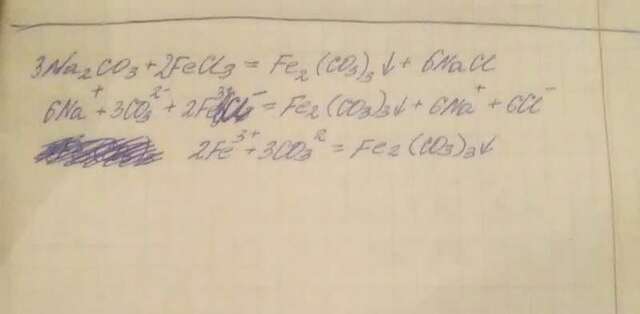 3Na₂CO₃ + 2FeCl₃ = Fe₂(CO₃)₃↓ + 6NaCl
6Na⁺ + 3CO₃²⁻ + 2Fe³⁺ Cl⁻ = Fe₂(CO₃)₃↓ + 6Na⁺ + 6Cl⁻
2Fe³⁺ + 3CO₃² = Fe₂(CO₃)₃↓